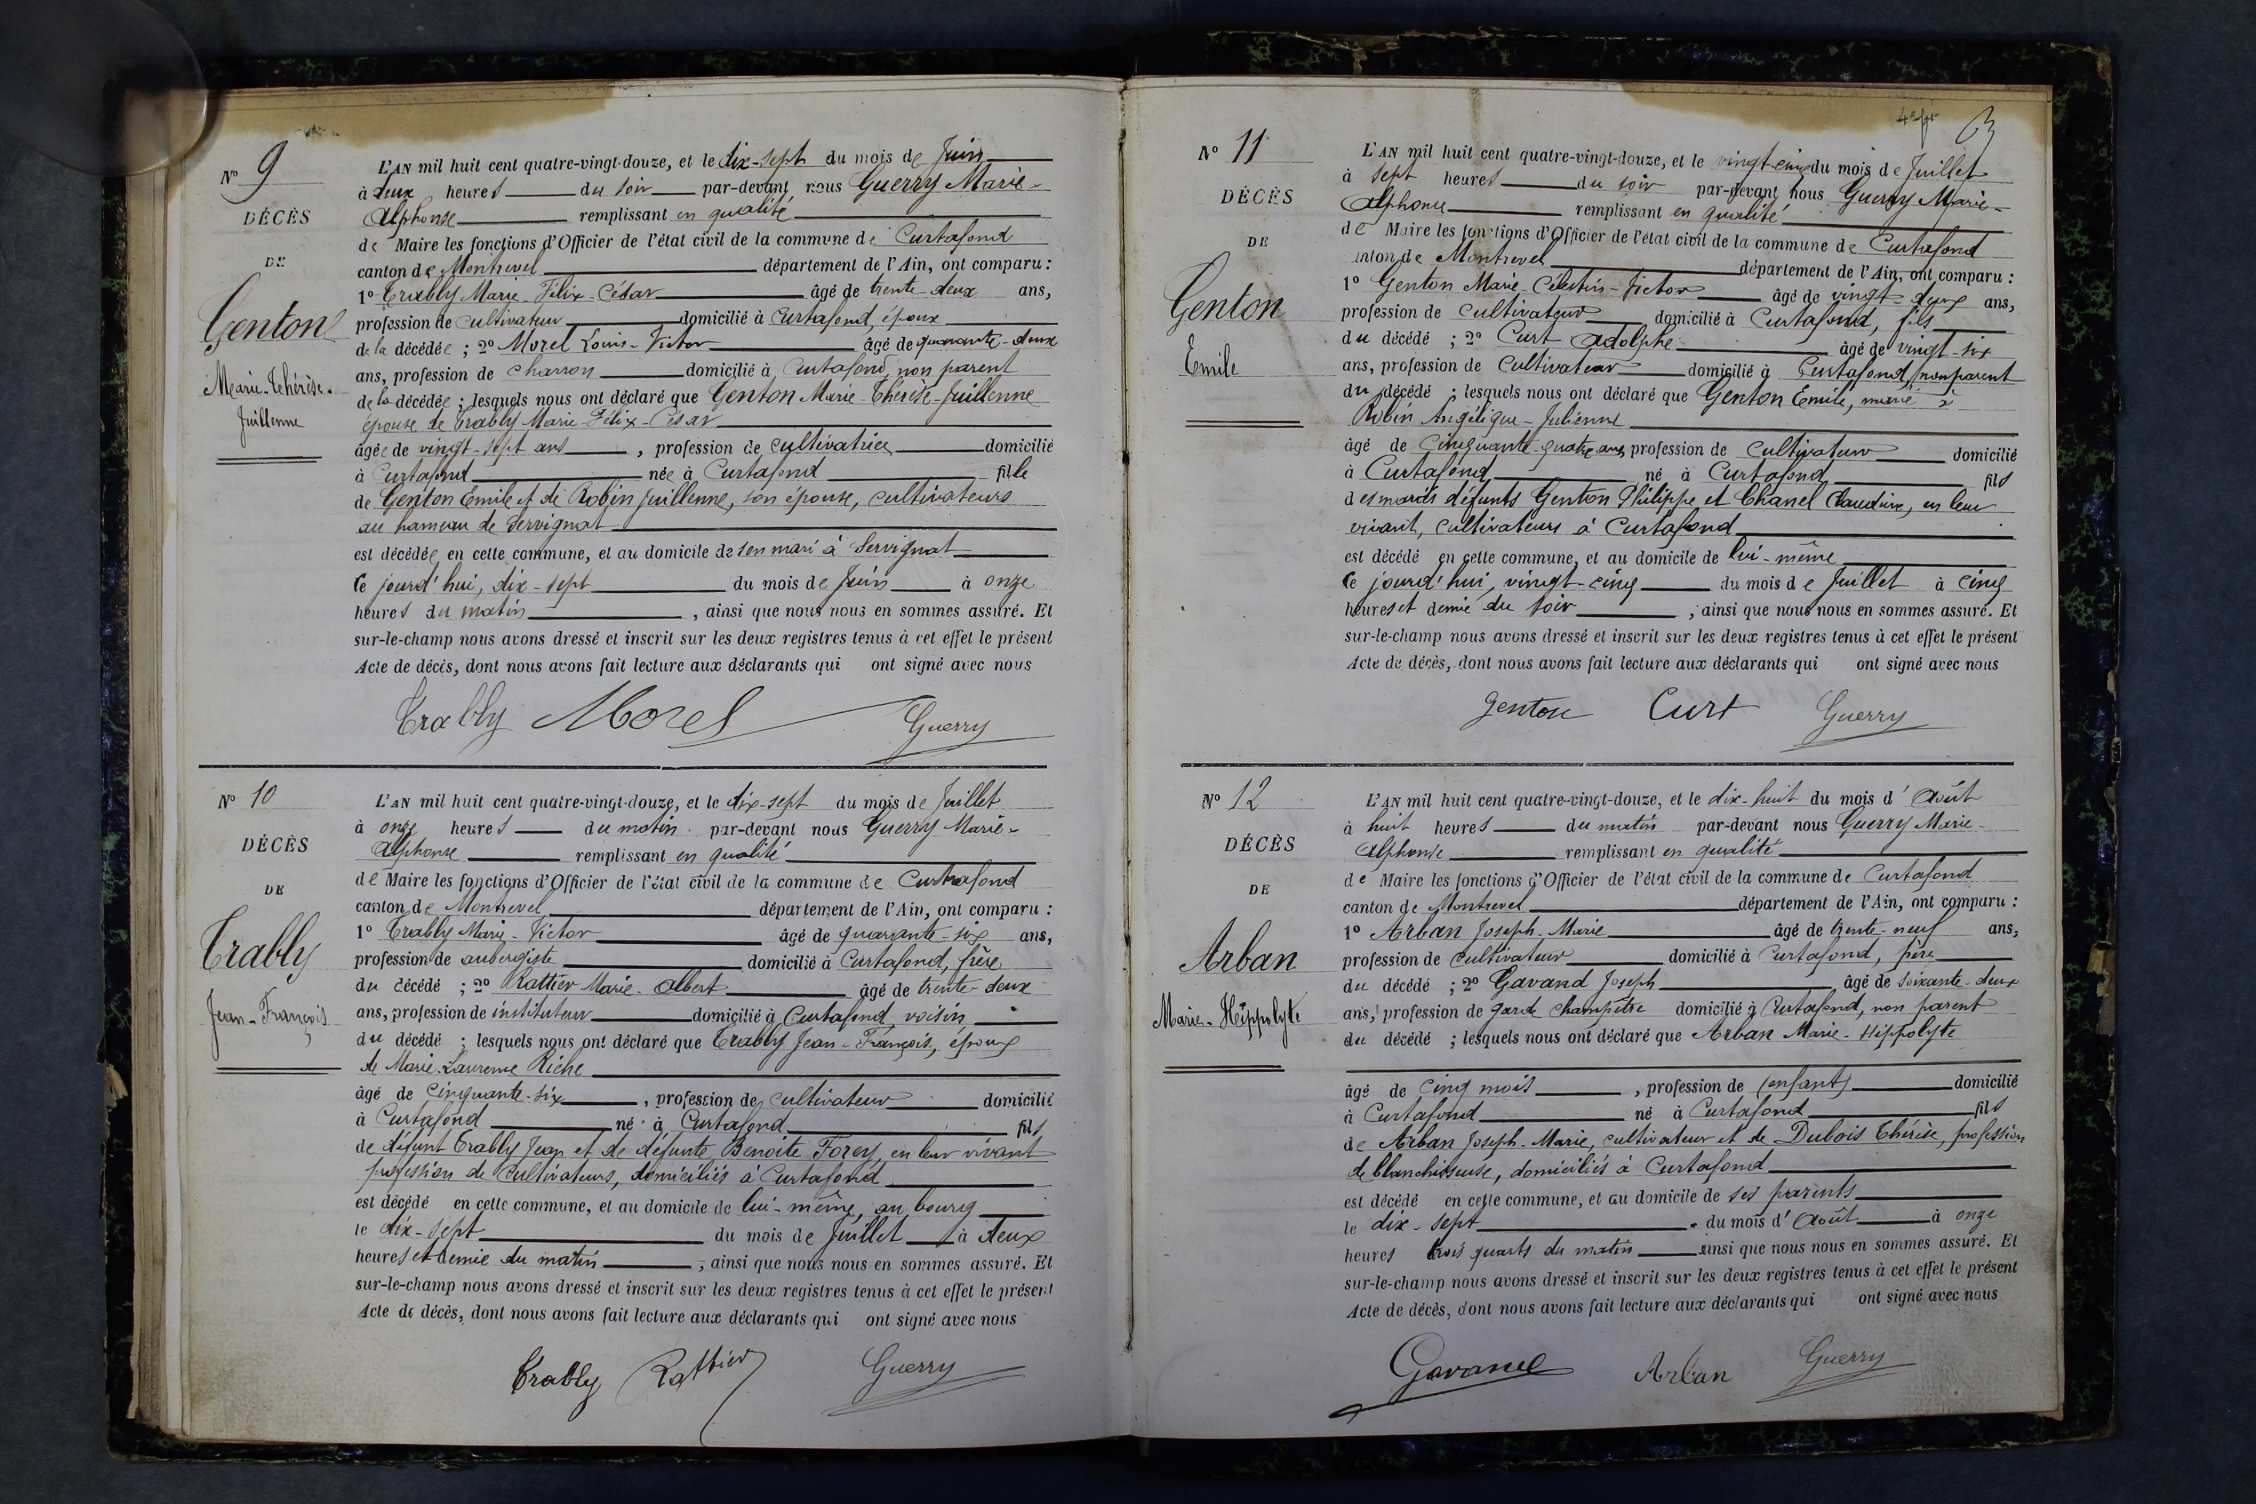 N° 9
DÉCÈS
DE
Genton
Marie-Thérèse-
Juillenne
L'AN mil huit cent quatre-vingt-douze, et le dix-sept du mois de Juin
à deux heures du soir par-devant nous Guerry Marie-
Alphonse remplissant en qualité
de Maire les fonctions d'Officier de l'état civil de la commune de Curtafond
canton de Montrevel département de l'Ain, ont comparu :
1° Trably Marie-Félix-César âgé de trente-deux ans,
profession de cultivateur domicilié à Curtafond, époux
de la décédée ; 2° Morel Louis-Victor âgé de quarante-deux
ans, profession de charron domicilié à Curtafond, non parent
de la décédée ; lesquels nous ont déclaré que Genton Marie-Thérèse-Juillenne
épouse de Trably Marie-Félix-César
âgée de vingt-sept ans , profession de cultivatrice domicilié
à Curtafond née à Curtafond fille
de Genton Emile et de Robin Juillenne, son épouse, cultivateurs
au hameau de Servignat
est décédée en cette commune, et au domicile de son mari à Servignat
ce jourd'hui, dix-sept du mois de Juin à onze
heures du matin , ainsi que nous nous en sommes assuré. Et
sur-le-champ nous avons dressé et inscrit sur les deux registres tenus à cet effet le présent
Acte de décès, dont nous avons fait lecture aux déclarants qui ont signé avec nous
Trably Morel Guerry
N° 10
DÉCÈS
DE
Trably
Jean-François
L'AN mil huit cent quatre-vingt-douze, et le dix-sept du mois de Juillet
à onze heures du matin par-devant nous Guerry Marie-
Alphonse remplissant en qualité
de Maire les fonctions d'Officier de l'état civil de la commune de Curtafond
canton de Montrevel département de l'Ain, ont comparu :
1° Trably Marie-Victor âgé de quarante-six ans,
profession de aubergiste domicilié à Curtafond, frère
du décédé ; 2° Rattier Marie-Albert âgé de trente-deux
ans, profession de instituteur domicilié à Curtafond, voisin
du décédé ; lesquels nous ont déclaré que Trably Jean-François, époux
de Marie-Laurence Riche
âgé de cinquante-six , profession de cultivateur domicilié
à Curtafond né à Curtafond fils
de défunt Trably Jean et de défunte Benoîte Forey, en leur vivant
profession de Cultivateurs, domiciliés à Curtafond
est décédé en cette commune, et au domicile de lui-même, au bourg
le dix-sept du mois de Juillet à deux
heures et demie du matin , ainsi que nous nous en sommes assuré. Et
sur-le-champ nous avons dressé et inscrit sur les deux registres tenus à cet effet le présent
Acte de décès, dont nous avons fait lecture aux déclarants qui ont signé avec nous
Trably Rattier Guerry
N° 11
DÉCÈS
DE
Genton
Emile
L'AN mil huit cent quatre-vingt-douze, et le vingt-cinq du mois de Juillet
à sept heures du soir par-devant nous Guerry Marie-
Alphonse remplissant en qualité
de Maire les fonctions d'Officier de l'état civil de la commune de Curtafond
canton de Montrevel département de l'Ain, ont comparu :
1° Genton Marie-Célestin-Victor âgé de vingt-deux ans,
profession de cultivateur domicilié à Curtafond, fils
du décédé ; 2° Curt Adolphe âgé de vingt-six
ans, profession de cultivateur domicilié à Curtafond, non parent
du décédé ; lesquels nous ont déclaré que Genton Emile, marié à
Robin Angélique-Julienne
âgé de cinquante-quatre ans, profession de cultivateur domicilié
à Curtafond né à Curtafond fils
des mariés défunts Genton Philippe et Chanel Claudine, en leur
vivant, cultivateurs à Curtafond
est décédé en cette commune, et au domicile de lui-même
ce jourd'hui, vingt-cinq du mois de Juillet à cinq
heures et demie du soir , ainsi que nous nous en sommes assuré. Et
sur-le-champ nous avons dressé et inscrit sur les deux registres tenus à cet effet le présent
Acte de décès, dont nous avons fait lecture aux déclarants qui ont signé avec nous
Genton Curt Guerry
N° 12
DÉCÈS
DE
Arban
Marie-Hippolyte
L'AN mil huit cent quatre-vingt-douze, et le dix-huit du mois d'Août
à huit heures du matin par-devant nous Guerry Marie-
Alphonse remplissant en qualité
de Maire les fonctions d'Officier de l'état civil de la commune de Curtafond
canton de Montrevel département de l'Ain, ont comparu :
1° Arban Joseph-Marie âgé de trente-neuf ans,
profession de cultivateur domicilié à Curtafond, père
du décédé ; 2° Gavand Joseph âgé de soixante-deux
ans, profession de garde champêtre domicilié à Curtafond, non parent
du décédé ; lesquels nous ont déclaré que Arban Marie-Hippolyte
âgé de cinq mois , profession de (enfant) domicilié
à Curtafond né à Curtafond fils
de Arban Joseph-Marie, cultivateur et de Dubois Thérèse, profession
de blanchisseuse, domiciliés à Curtafond
est décédé en cette commune, et au domicile de ses parents
le dix-sept du mois d'Août à onze
heures trois quarts du matin ainsi que nous nous en sommes assuré. Et
sur-le-champ nous avons dressé et inscrit sur les deux registres tenus à cet effet le présent
Acte de décès, dont nous avons fait lecture aux déclarants qui ont signé avec nous
Gavand Arban Guerry